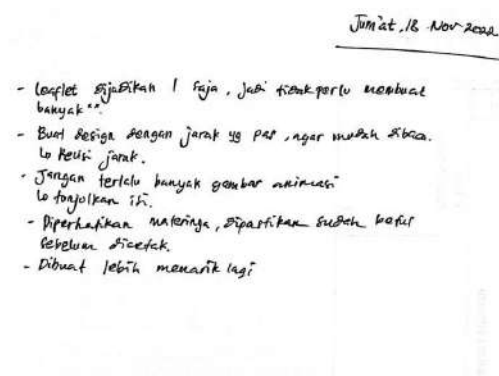 Jum'at, 18 Nov 2022
- leaflet dijadikan 1 saja, jadi tidak perlu membuat
banyak"
- Buat design dengan jarak yg pas, agar mudah dibaca.
↳ Revisi jarak.
- Jangan terlalu banyak gambar animasi
↳ tonjolkan isi.
- Diperhatikan materinya, dipastikan sudah betul
sebelum dicetak.
- Dibuat lebih menarik lagi